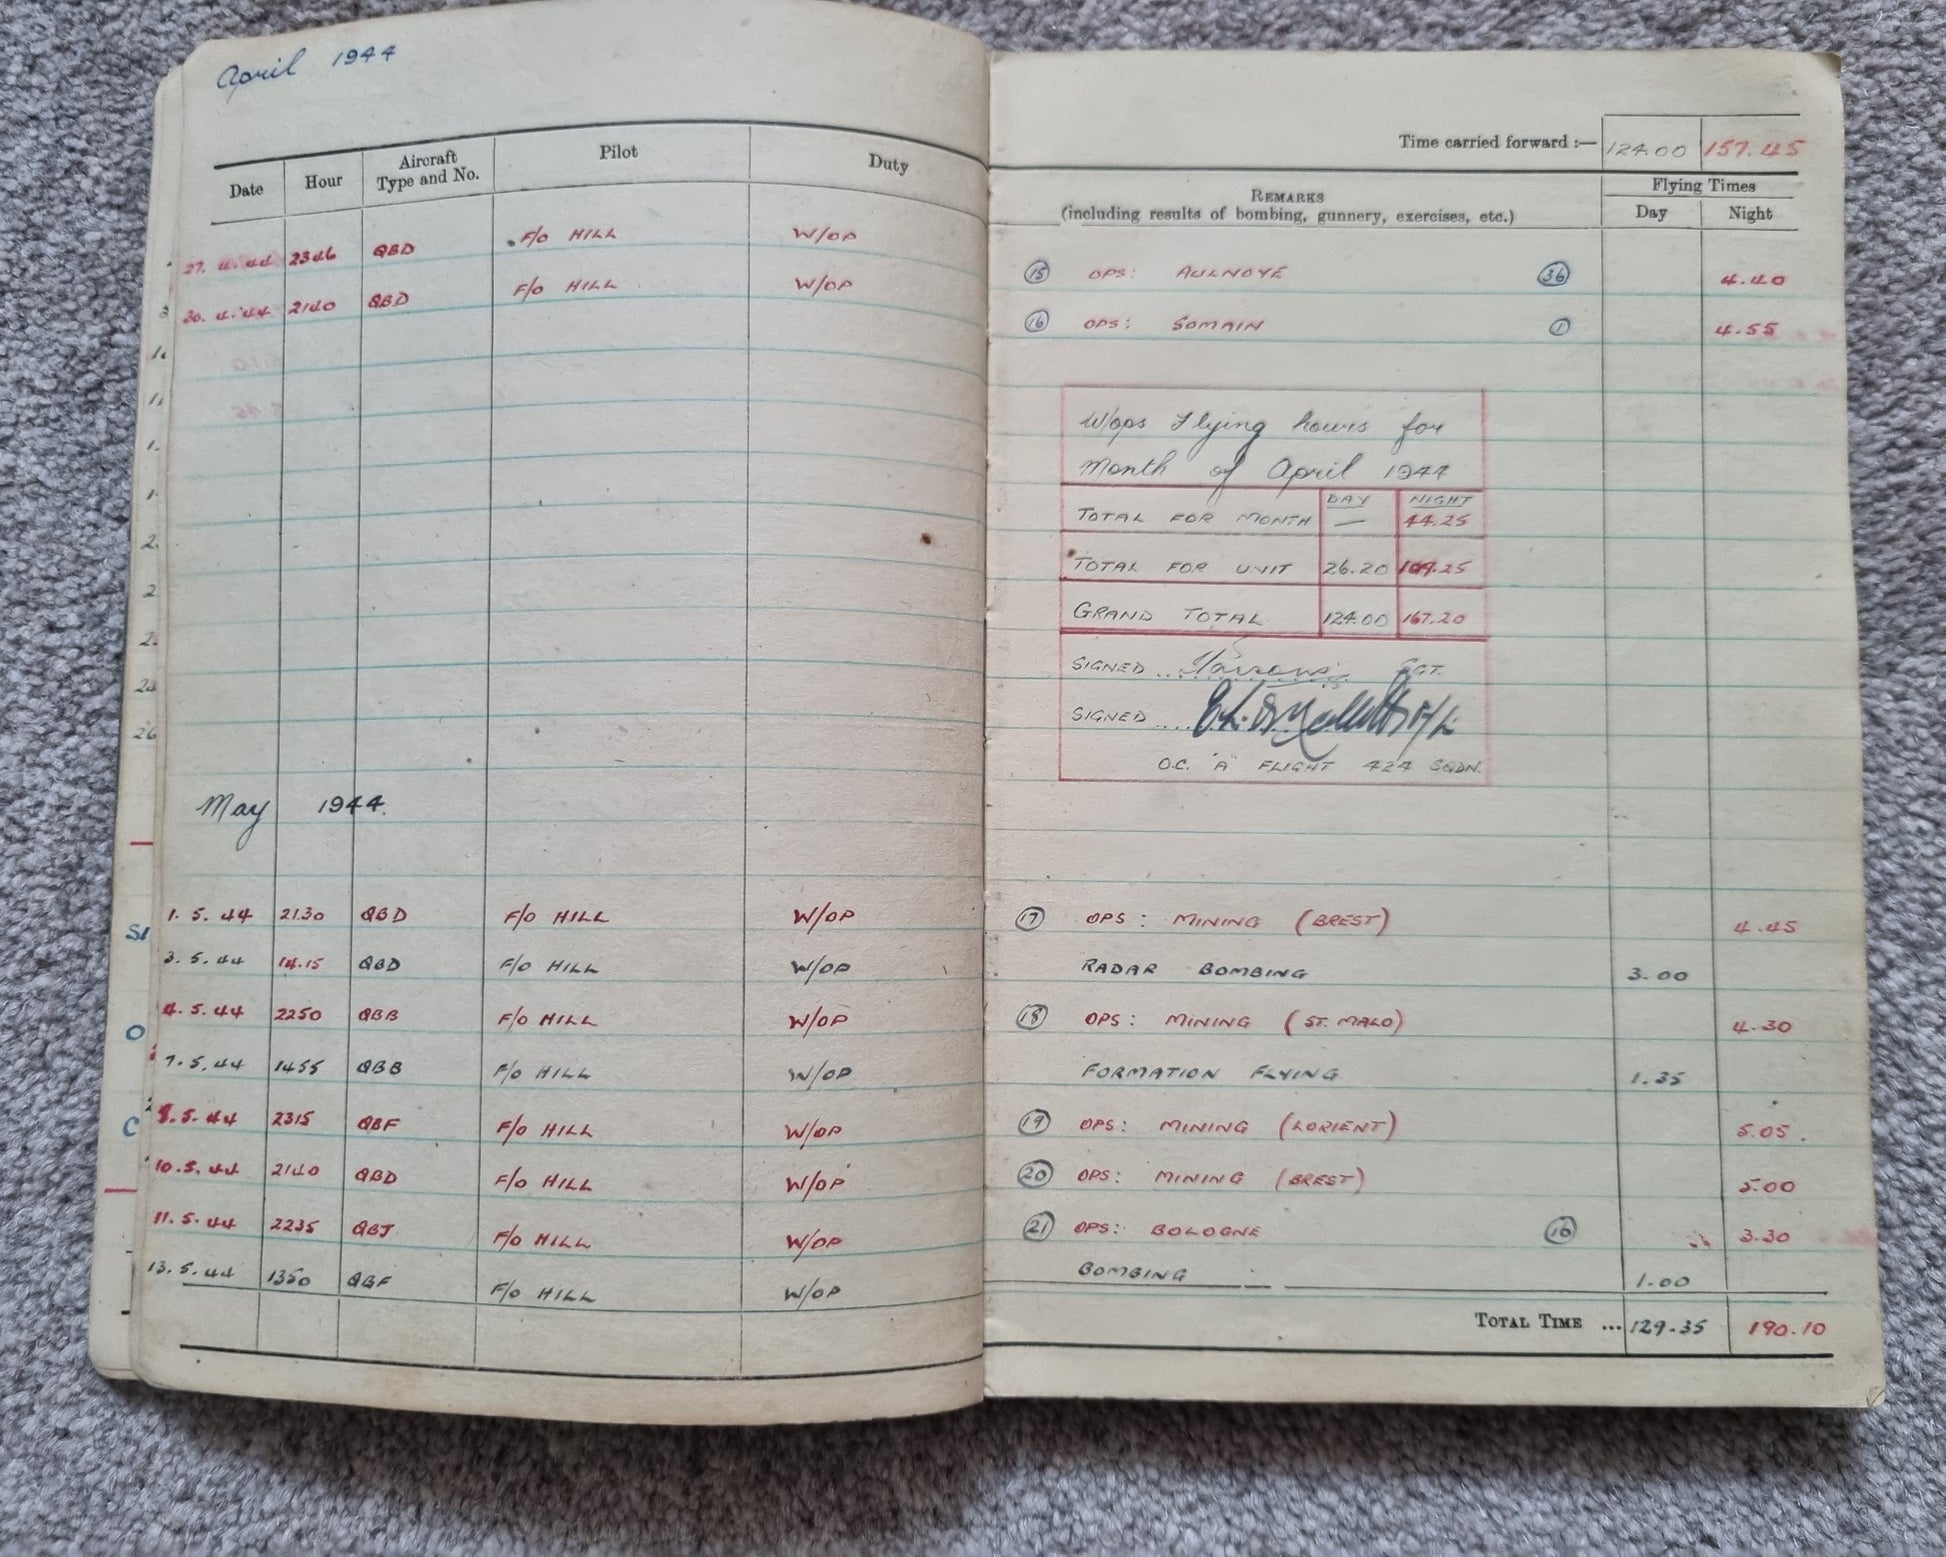 April 1944
Date Hour Aircraft Type and No. Pilot Duty
27. 4. 44 2346 QBD F/O HILL W/OP
30. 4. 44 2140 QBD F/O HILL W/OP
May 1944.
1. 5. 44 2130 QBD F/O HILL W/OP
3. 5. 44 14.15 QBD F/O HILL W/OP
4. 5. 44 2250 QBB F/O HILL W/OP
7. 5. 44 1455 QBB F/O HILL W/OP
8. 5. 44 2315 QBF F/O HILL W/OP
10. 5. 44 2140 QBD F/O HILL W/OP
11. 5. 44 2235 QBJ F/O HILL W/OP
13. 5. 44 1350 QBF F/O HILL W/OP
Time carried forward :— 124.00 157.45
REMARKS Flying Times
(including results of bombing, gunnery, exercises, etc.) Day Night
15 OPS: AULNOYE 36 4.40
16 OPS: SOMAIN 1 4.55
W/ops Flying hours for
Month of April 1944
DAY NIGHT
TOTAL FOR MONTH — 44.25
TOTAL FOR UNIT 26.20 109.25
GRAND TOTAL 124.00 167.20
SIGNED SGT.
SIGNED F/L
O.C. "A" FLIGHT 424 SQDN.
17 OPS: MINING (BREST) 4.45
RADAR BOMBING 3.00
18 OPS: MINING (ST. MALO) 4.30
FORMATION FLYING 1.35
19 OPS: MINING (LORIENT) 5.05.
20 OPS: MINING (BREST) 5.00
21 OPS: BOLOGNE 16 3.30
BOMBING 1.00
TOTAL TIME ... 129.35 190.10